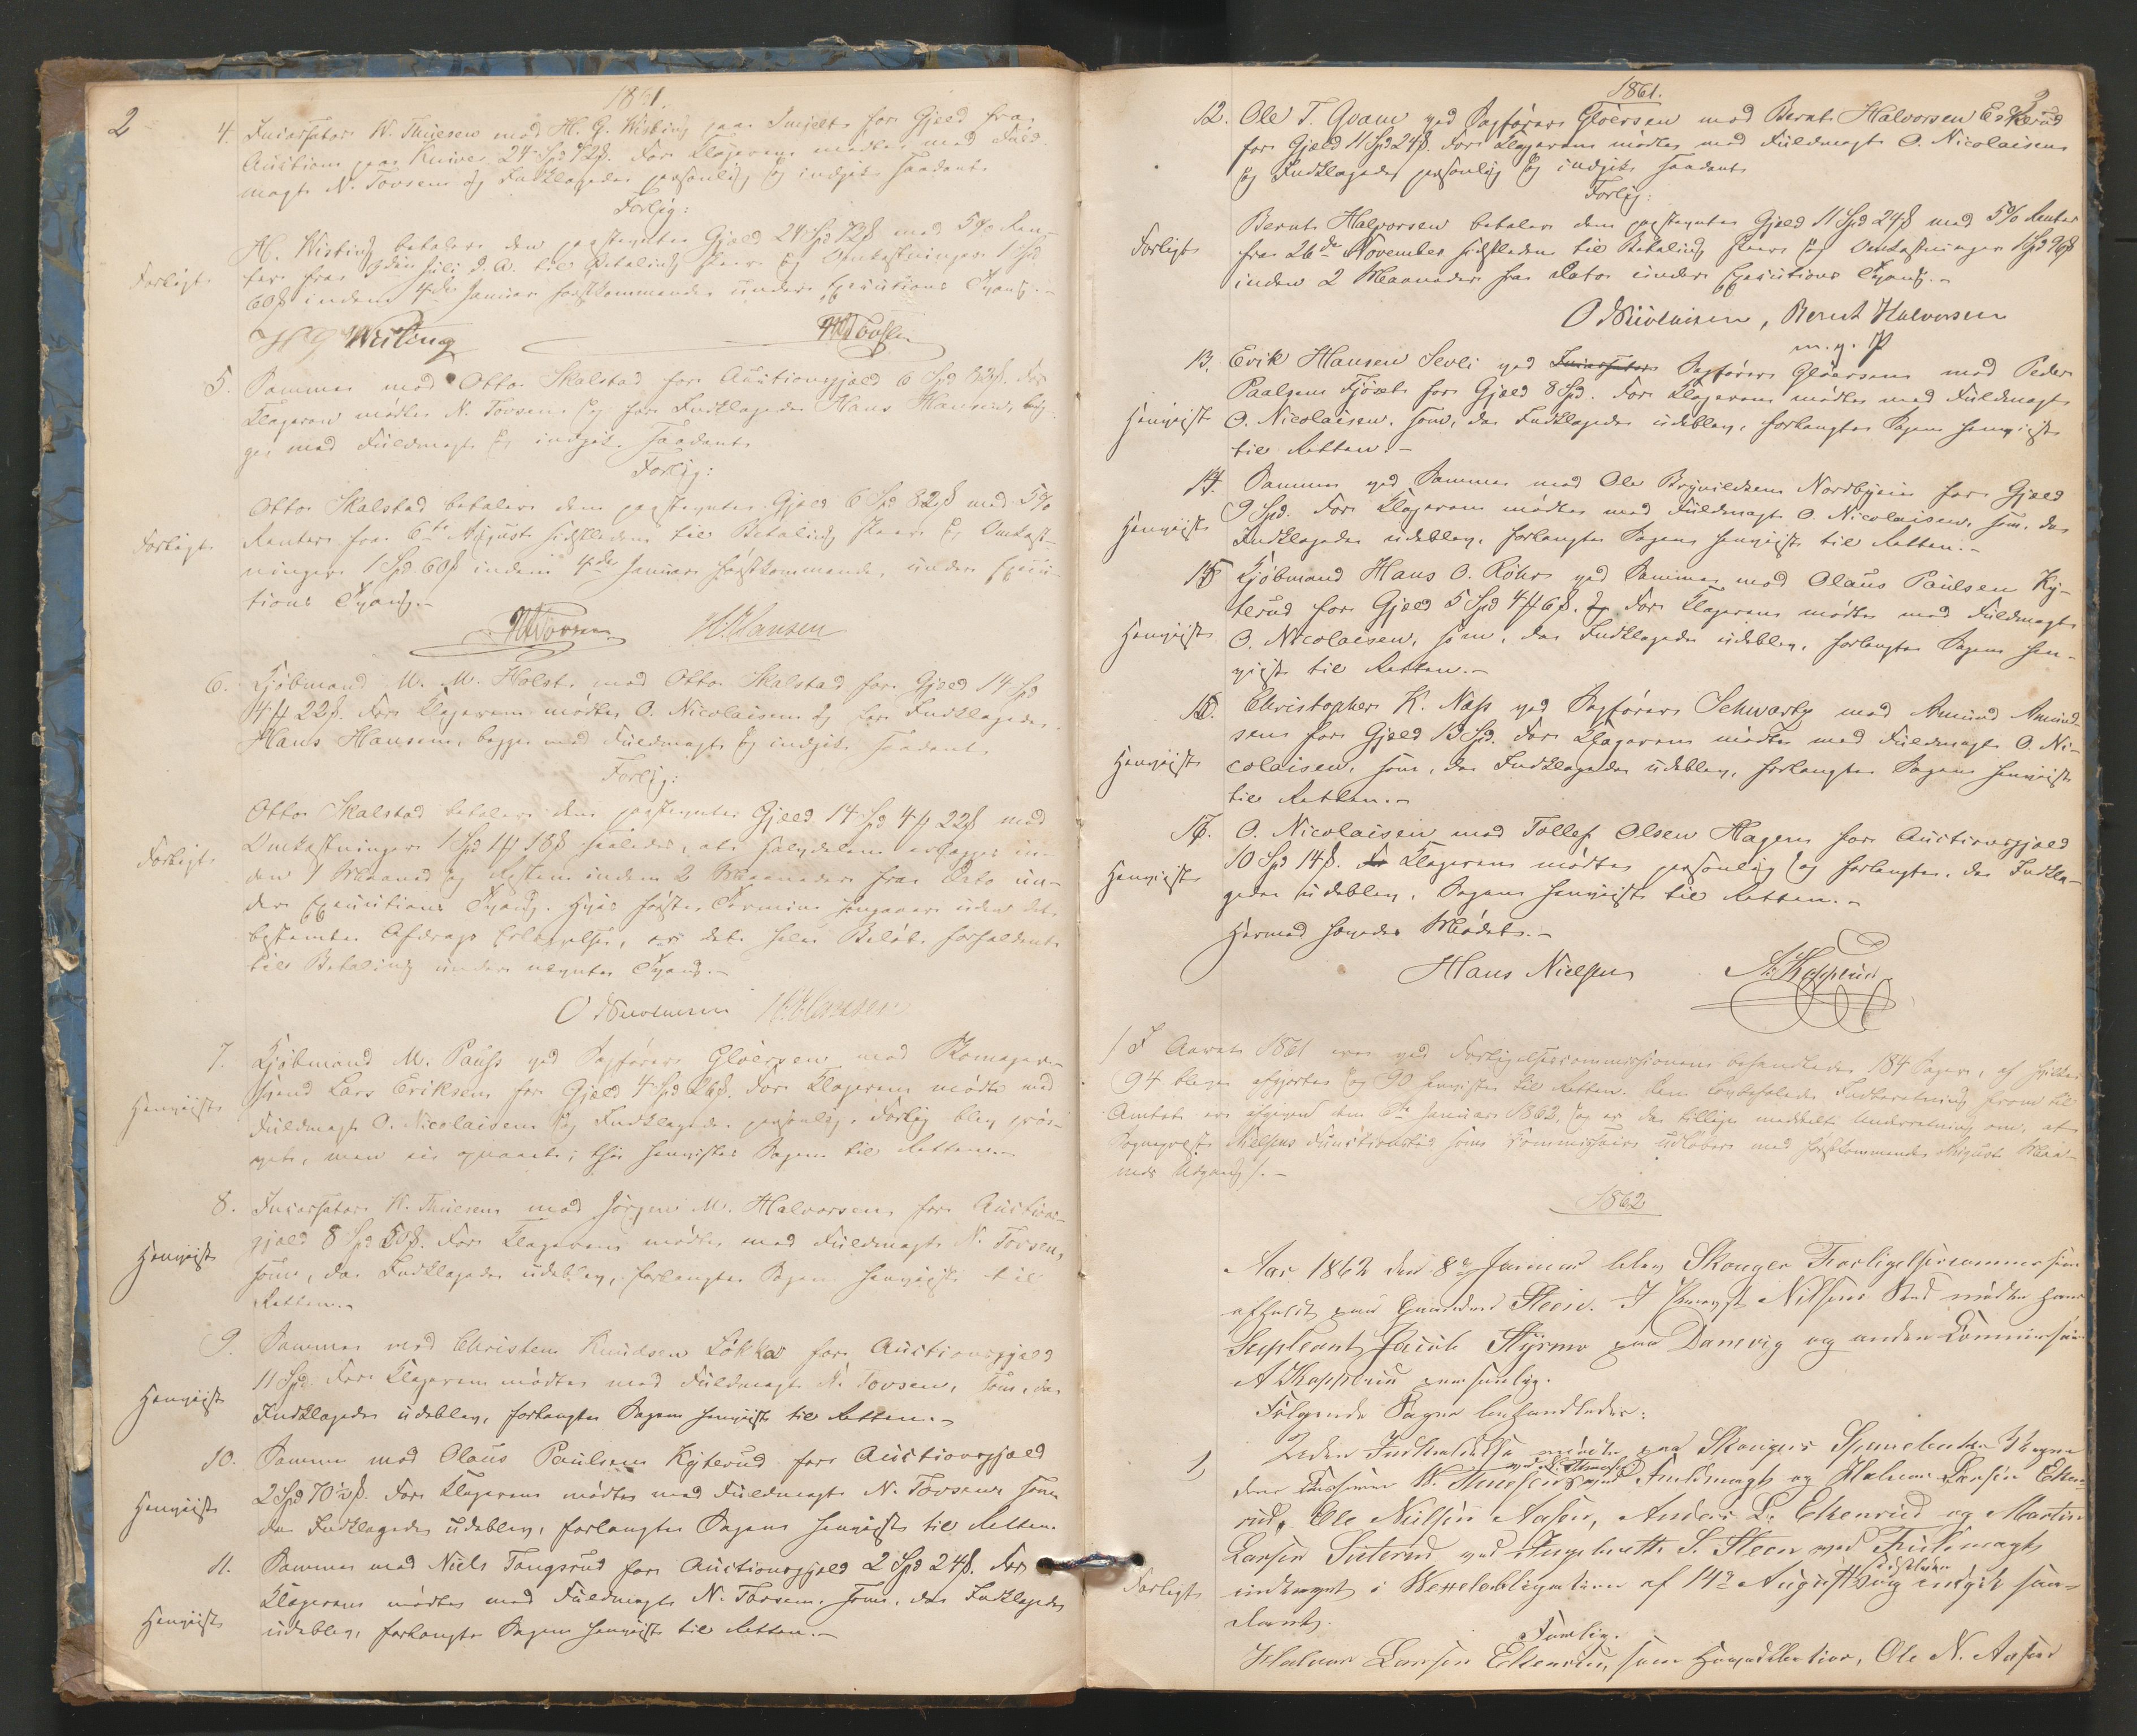 2
1861.
4. Incassator W. Thuesen mod H. G. Wisting paa Smijelt for Gjæld fra
Auction paa Kniver 24 Spd 72 ß. For Klageren mødte med Fuld-
magt N. Tovsen og Indklagede personlig og indgik saadant
Forlig:
H. Wisting betaler den paastevnte Gjæld 24 Spd 72 ß med 5 % Ren-
Forligt. ter fra den Juli d. A. til Betaling skeer og Omkostninger 1 Spd
60 ß inden 4de Januar førstkommende under Executions Tvang.-
H G Wisting N Tovsen
5. Samme mod Otto Skalstad for Auctionsgjæld 6 Spd 82 ß. For
Klageren mødte N. Tovsen og for Indklagede Hans Hansen, beg-
ge med Fuldmagt og indgik saadant
Forlig:
Otto Skalstad betaler den paastevnte Gjæld 6 Spd 82 ß med 5 %
Forligt. Renter fra 6te August sidstleden til Betaling skeer og Omkost-
ninger 1 Spd 60 ß inden 4de Januar førstkommende, under Execu-
tions Tvang.-
N Tovsen H. Hansen
6. Kjøbmand M. Holst mod Otto Skalstad for Gjæld 14 Spd
4 ₶ 22 ß. For Klageren mødte O. Nicolaisen og for Indklagede
Hans Hansen, begge med Fuldmagt og indgik saadant
Forlig:
Otto Skalstad betaler den paastevnte Gjæld 14 Spd 4 ₶ 22 ß med
Forligt. Omkostninger 1 Spd 1 ₶ 18 ß saaledes, at Halvdelen erlægges in-
den 1 Maaned og Resten inden 2 Maaneder fra Dato un-
der Executions Tvang. Hvis første Termin hengaaer uden det
bestemte Afdrags Erlæggelse, er det hele Beløb forfaldent
til Betaling under nævnte Tvang.-
O Nicolaisen H. Hansen
7. Kjøbmand M. Pauss ved Sagfører Gløersen mod Skomager-
svend Lars Eriksen for Gjæld 4 Spd 26 ß. For Klageren mødte med
Henviist Fuldmagt O. Nicolaisen og Indklagede personlig. Forlig blev prø-
vet, men ei opnaaet; thi henvistes Sagen til Retten.-
8. Incassator W. Thuesen mod Jørgen M. Halvorsen for Auctions-
gjæld 8 Spd 50 ß. For Klageren mødte med Fuldmagt N. Tovsen,
Henviist som, da Indklagede udeblev, forlangte Sagen henviist til
Retten.-
9. Samme mod Christen Knudsen Løkka for Auctionsgjæld
11 Spd. For Klageren mødte med Fuldmagt N. Tovsen, som, da
Henviist Indklagede udeblev, forlangte Sagen henviist til Retten.-
10. Samme mod Olaus Paulsen Kyterud for Auctionsgjæld
2 Spd 70½ ß. For Klageren mødte med Fuldmagt N. Tovsen som
Henviist da Indklagede udeblev, forlangte Sagen henviist til Retten.
11. Samme mod Niels Tangsrud for Auctionsgjæld 2 Spd 24 ß. For
Klageren mødte med Fuldmagt N. Tovsen, som, da Indklagede
Henviist udeblev, forlangte Sagen henviist til Retten.-
1861.
3
12. Ole T. Qvam ved Sagfører Gløersen mod Bernt Halvorsen Eskerud
for Gjæld 11 Spd 24 ß. For Klageren mødte med Fuldmagt O. Nicolaisen
og Indklagede personlig og indgik saadant
Forlig:
Bernt Halvorsen betaler den paastevnte Gjæld 11 Spd 24 ß med 5 % Renter
Forligt fra 26de November sidstleden til Betaling skeer og Omkostninger 1 Spd 96 ß
inden 2 Maaneder fra Dato under Executions Tvang.-
O Nicolaisen, Bernt Halvorsen
m. p. P
13. Erik Hansen Sevli ved Incassator Sagfører Gløersen mod Peder
Paalsen Fjøset for Gjæld 8 Spd. For Klageren mødte med Fuldmagt
Henviist O. Nicolaisen, som, da Indklagede udeblev, forlangte Sagen henviist
til Retten.-
14. Samme ved Samme mod Ole Brynildsen Nordbyeie for Gjæld
9 Spd. For Klageren mødte med Fuldmagt O. Nicolaisen, som, da
Henviist Indklagede udeblev, forlangte Sagen henviist til Retten.-
15 Kjøbmand Hans O. Röhr ved Samme mod Olaus Paulsen Ky-
terud for Gjæld 5 Spd 4 ₶ 6 ß. For Klageren mødte med Fuldmagt
Henviist O. Nicolaisen, som, da Indklagede udeblev, forlangte Sagen hen-
viist til Retten.-
16. Christopher K. Næss ved Sagfører Schwartz mod Amund Amund-
sen for Gjæld 13 Spd. For Klageren mødte med Fuldmagt O. Ni-
Henviist colaisen, som, da Indklagede udeblev, forlangte Sagen henviist
til Retten.-
17. O. Nicolaisen mod Tollef Olsen Hagen for Auctionsgjæld
10 Spd 14 ß. Klageren mødte personlig og forlangte, da Indkla-
Henviist gede udeblev, Sagen henviist til Retten.-
Hermed hævedes Mødet.-
Hans Nielsen A. Kopperud
/ I Aaret 1861 er ved Forligelsescommissionen behandlede 184 Sager, af hvilke
94 bleve afgjorte og 90 henviste til Retten. Den lovbefalede Indberetning herom til
Amtet er afgiven den 8de Januar 1862, og er der tillige meddelt Underretning om, at
Nielsens Functionstid som Commissair udløber med førstkommende August Maa-
neds Udgang /.-
1862
Aar 1862 den 8de Januar blev Skouger Forligelsescommission
afholdt paa Gaarden Steen. I Nielsens Sted mødte hans
Supleant Jacob Styrmo paa Danevig og anden Commissair
A Kopperud personlig.
Følgende Sager behandledes:
1, Uden Indkaldelse mødte paa Skougers Sparebanks Vegne
dens Kasserer W. Thuesen ved Fuldmagt og Halvor Larsen Eken-
rud, Ole Nielsen Aasen, Anders L. Ekenrud og Martin
Larsen Suterud ved Ingebreth S. Steen med Fuldmagt
Forligt indtaget i Vexelobligation af 14de August sidstleden og indgik saa-
dant.
Forlig.
Halvor Larsen Ekenrud, som Hoveddebitor, Ole N. Aasen